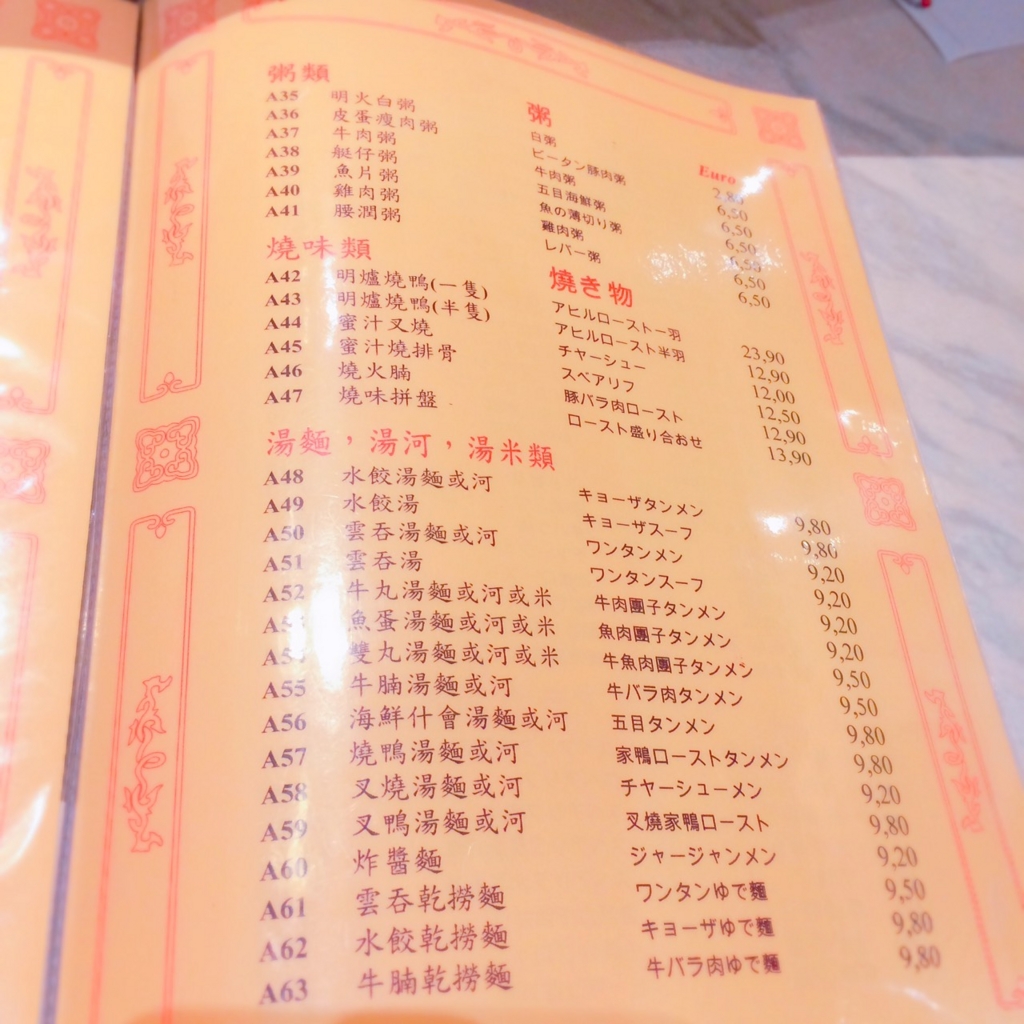 粥類 粥 Euro
A35 明火白粥 白粥 2,80
A36 皮蛋瘦肉粥 ピータン豚肉粥 6,50
A37 牛肉粥 牛肉粥 6,50
A38 艇仔粥 五目海鮮粥 6,50
A39 魚片粥 魚の薄切り粥 6,50
A40 雞肉粥 雞肉粥 6,50
A41 腰潤粥 レバー粥 6,50
燒味類 燒き物
A42 明爐燒鴨(一隻) アヒルロースト一羽 23,90
A43 明爐燒鴨(半隻) アヒルロースト半羽 12,90
A44 蜜汁叉燒 チヤーシュー 12,00
A45 蜜汁燒排骨 スペアリフ 12,50
A46 燒火腩 豚バラ肉ロースト 12,90
A47 燒味拼盤 ロースト盛り合おせ 13,90
湯麵,湯河,湯米類
A48 水餃湯麵或河 キョーザタンメン 9,80
A49 水餃湯 キョーザスーフ 9,80
A50 雲吞湯麵或河 ワンタンメン 9,20
A51 雲吞湯 ワンタンスーフ 9,20
A52 牛丸湯麵或河或米 牛肉團子タンメン 9,20
魚蛋湯麵或河或米 魚肉團子タンメン 9,20
雙丸湯麵或河或米 牛魚肉團子タンメン 9,50
A55 牛腩湯麵或河 牛バラ肉タンメン 9,50
A56 海鮮什會湯麵或河 五目タンメン 9,80
A57 燒鴨湯麵或河 家鴨ローストタンメン 9,80
A58 叉燒湯麵或河 チヤーシューメン 9,20
A59 叉鴨湯麵或河 叉燒家鴨ロースト 9,80
A60 炸醬麵 ジャージャンメン 9,20
A61 雲吞乾撈麵 ワンタンゆで麵 9,50
A62 水餃乾撈麵 キョーザゆで麵 9,80
A63 牛腩乾撈麵 牛バラ肉ゆで麵 9,80